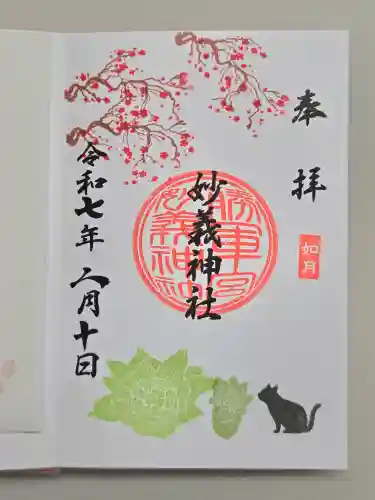 奉拝
如月
妙義神社
令和七年二月十日